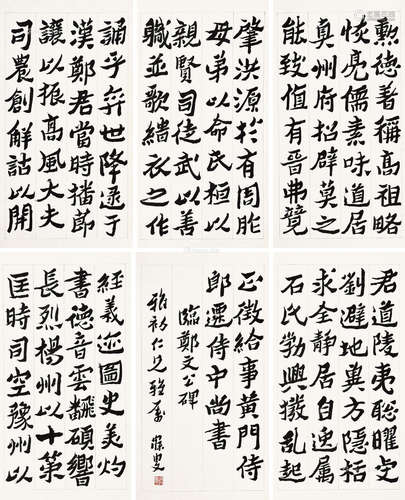 肇洪源於有周胙
母弟以命氏桓以
親賢司徒武以善
職並歌緇衣之作
誦乎弈世降逮于
漢鄭君當時播節
讓以振高風大夫
司農創解詁以開
經義迹圖史美灼
書德音雲飜碩響
長烈楊州以十策
匡時司空豫州以
勳德著稱高祖略
恢亮儒素味道居
真州府招辟莫之
能致值有晉弗競
君道陵夷聰曜虔
劉避地冀方隱括
求全靜居自逸属
石氏勃興撥亂起
正徵給事黃門侍
郎遷侍中尚書
臨鄭文公碑
雅初仁兄雅屬